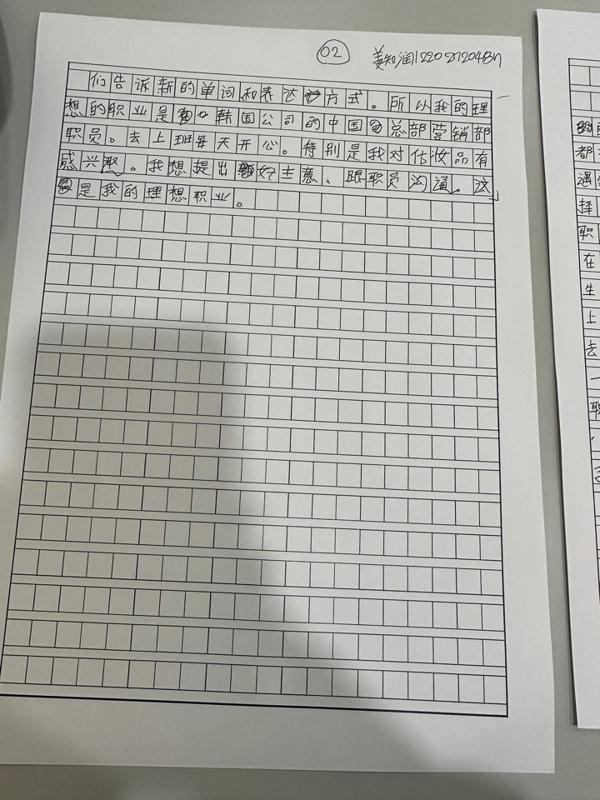 02
姜知润
们告诉新的单词和表达方式。所以我的理
想的职业是韩国公司的中国总部营销部
职员。去上班每天开心。特别是我对化妆品有
感兴趣。我想提出好主意、跟职员沟通。这
是我的理想职业。
都
遇
择
职
在
生
上
去
一
职